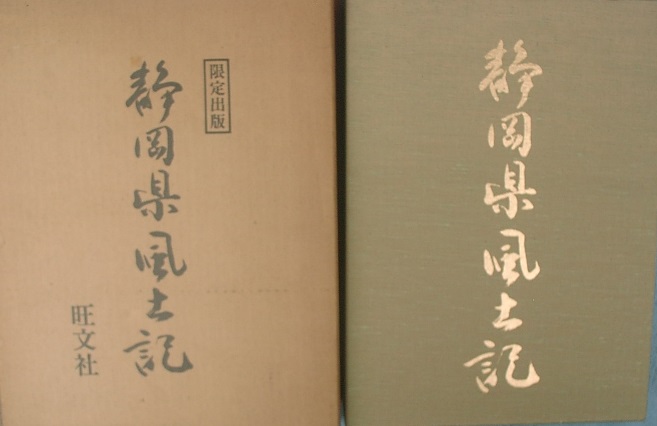 限定出版
静岡県風土記
旺文社
静岡県風土記